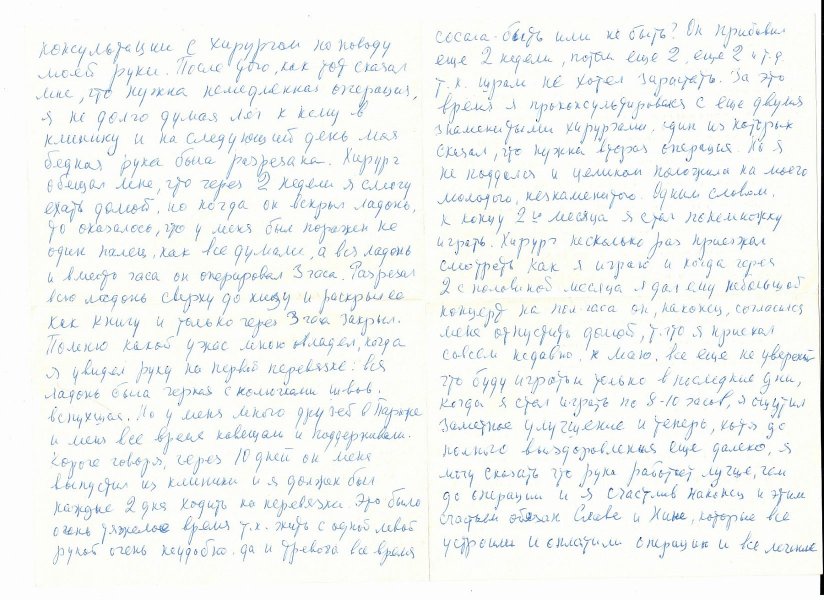 консультации с хирургом по поводу
моей руки. После того, как тот сказал
мне, что нужна немедленная операция,
я не долго думая лёг к нему в
клинику и на следующий день моя
бедная рука была разрезана. Хирург
обещал мне, что через 2 недели я смогу
ехать домой, но когда он вскрыл ладонь,
то оказалось, что у меня был поражен не
один палец, как все думали, а вся ладонь
и вместо часа он оперировал 3 часа. Разрезал
всю ладонь сверху до низу и раскрыл её
как книгу и только через 3 часа закрыл.
Помню какой ужас мною овладел, когда
я увидел руку на первой перевязке: вся
ладонь была черная с колючками швов.
вспухшая. Но у меня много друзей в Париже
и меня все время навещали и поддерживали.
Короче говоря, через 10 дней он меня
выпустил из клиники и я должен был
каждые 2 дня ходить на перевязки. Это было
очень тяжелое время т.к. жить с одной левой
рукой очень неудобно. да и тревога все время
сосала. быть или не быть? Он прибавил
еще 2 недели, потом еще 2, еще 2 и т.д.
т.к. шрам не хотел зарастать. За это
время я проконсультировался с еще двумя
знаменитыми хирургами. один из которых
сказал, что нужна вторая операция. Но я
не поддался и целиком положился на моего
молодого, незнаменитого. Одним словом,
к концу 2го месяца я стал понемножку
играть. Хирург несколько раз приезжал
смотреть как я играю и когда через
2 с половиной месяца я дал ему небольшой
концерт на пол-часа он, наконец, согласился
меня отпустить домой, т.что я приехал
совсем недавно, к маю. все еще не уверенный
что буду играть и только в последние дни,
когда я стал играть по 8-10 часов, я ощутил
заметное улучшение и теперь, хотя до
полного выздоровления еще далеко, я
могу сказать что рука работает лучше, чем
до операции и я счастлив наконец и этим
счастьем обязан Славе и Нине, которые все
устроили и оплатили операцию и все лечение